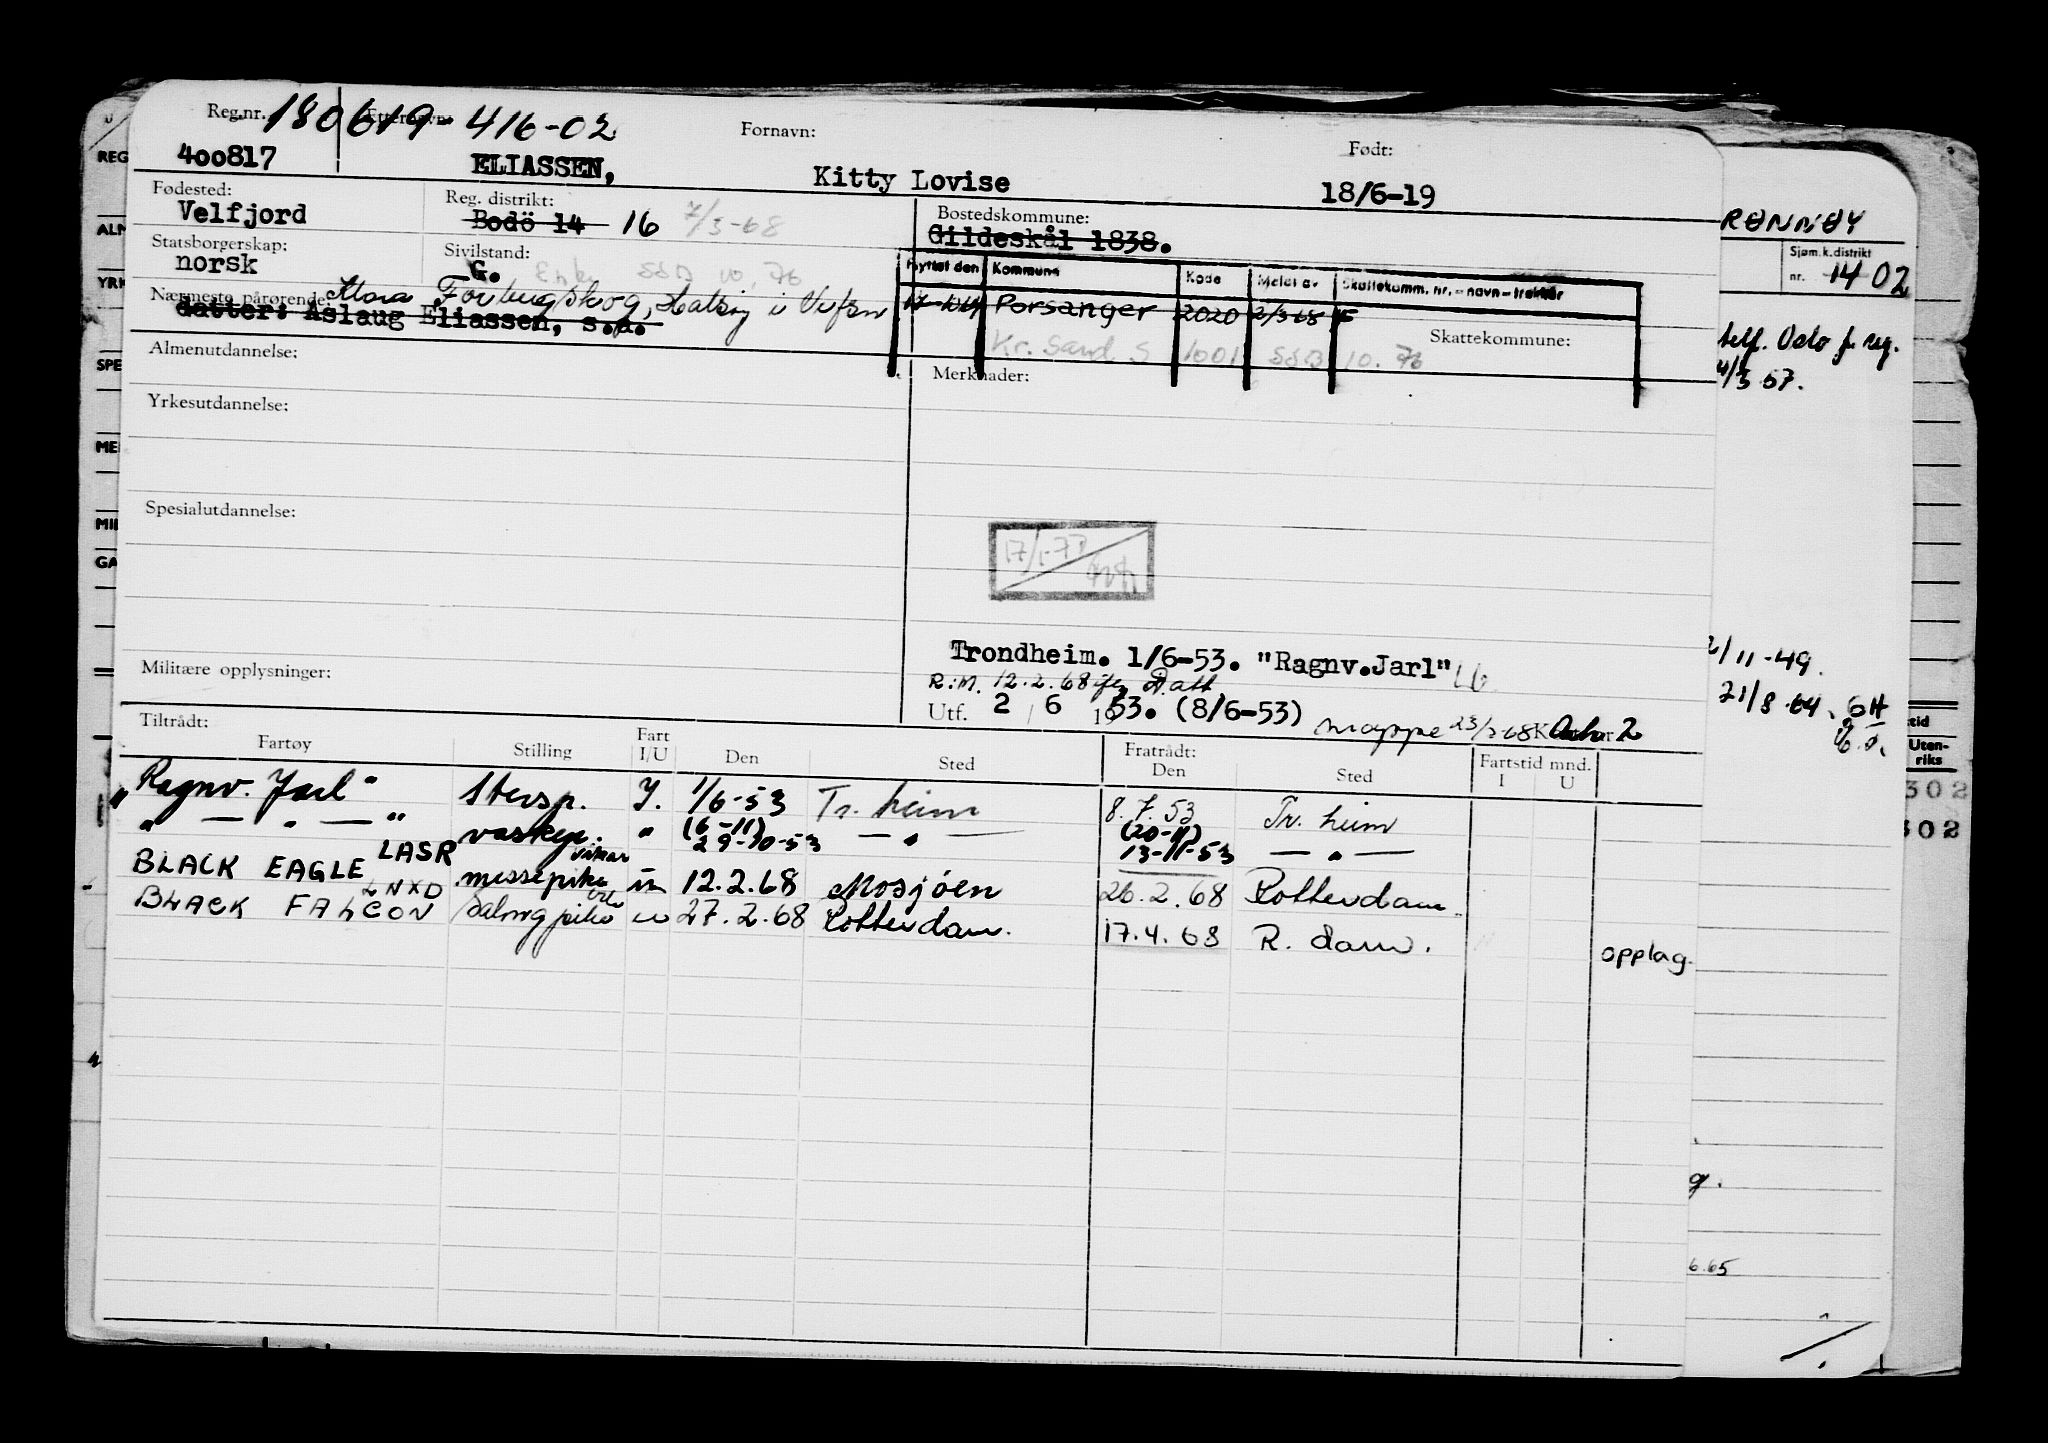 Reg.nr. 180619-416-02 Fornavn: Født:
400817 ELIASSEN, Kitty Lovise 18/6-19
Fødested: Reg. distrikt: Bostedskommune:
Velfjord Bodö 14 16 7/3-68 Gildeskål 1838.
Statsborgerskap: Sivilstand:
norsk G. Enke SSB 10.76
Flyttet den Kommune Kode Meldt av Skattekomm. nr. - navn - trekkår
Nærmeste pårørende:
datter: Aslaug Eliassen, s.a.
Porsanger 2020 2/3 68
Kr. Sand S 1001 SSB 10.76 Skattekommune:
Almenutdannelse: Merknader:
Yrkesutdannelse:
Spesialutdannelse:
17/1-77
Militære opplysninger:
Trondheim. 1/6-53. "Ragnv.Jarl" 16
R.M. 12.2.68
Utf. 2 / 6 1953. (8/6-53) mappe 23/2 68 Oslo 2
Tiltrådt: Fratrådt:
Fartøy Stilling Fart I/U Den Sted Den Sted Fartstid mnd. I U
"Ragnv. Jarl" I. 1/6-53 Tr.heim 8.7.53 Tr. heim
" — " — " " (6-11) 29-10-53 — " — (20-11) 13-11-53 — " —
BLACK EAGLE LASR messepike 12.2.68 Mosjøen 26.2.68 Rotterdam
BLACK FALCON LNXD Salongpike 27.2.68 Rotterdam. 17.4.68 R. dam. opplag.
RØNNØY
Sjøm.k.distrikt
nr. 14 02
telf. Oslo f. reg.
4/3 57.
2/11-49.
21/8-64. GH
tid
Uten-
riks
302
302
6.65
REG
ALM
YRK
SPE
MIL
GA